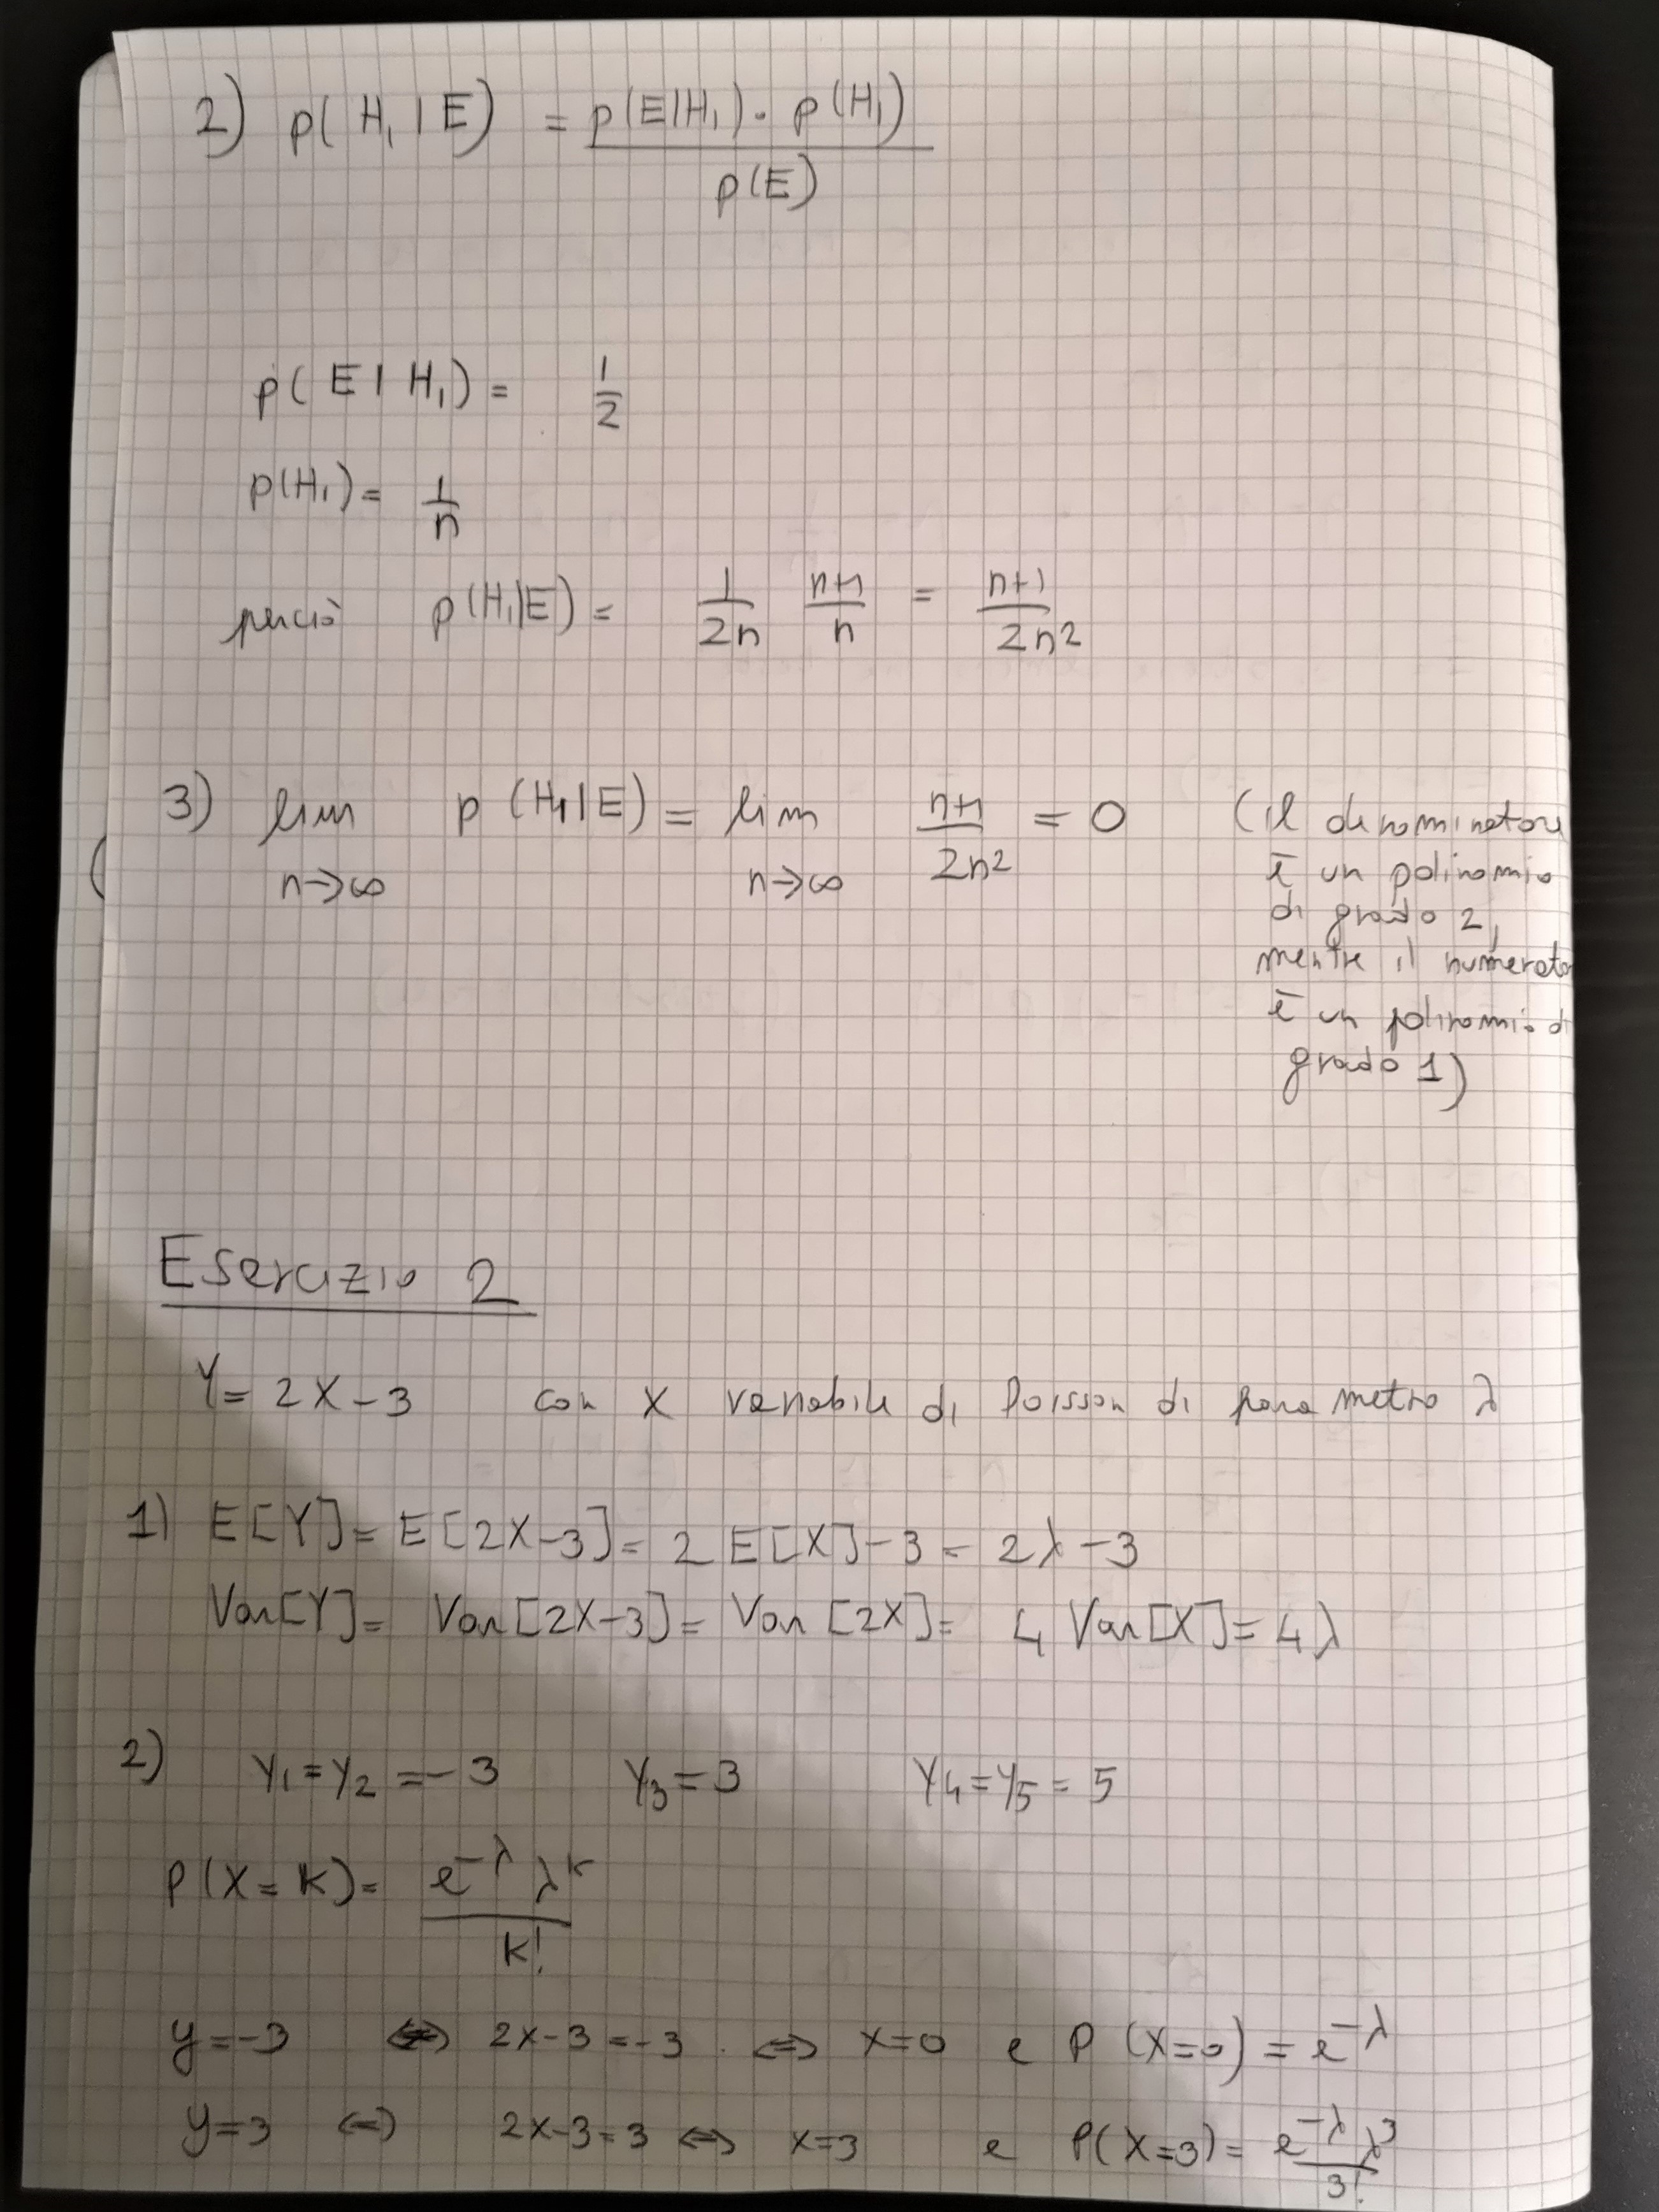 2) p(H₁|E) = p(E|H₁)·p(H₁) / p(E)
p(E|H₁) = 1/2
p(H₁) = 1/n
perciò p(H₁|E) = 1/2n n+1/n = n+1/2n²
3) lim n→∞ p(H₁|E) = lim n→∞ n+1/2n² = 0 (il denominatore
è un polinomio
di grado 2,
mentre il numerato
è un polinomio di
grado 1)
Esercizio 2
Y = 2X-3 con X variabile di Poisson di parametro λ
1) E[Y] = E[2X-3] = 2E[X]-3 = 2λ-3
Var[Y] = Var[2X-3] = Var[2X] = 4 Var[X] = 4λ
2) Y₁=Y₂=-3 Y₃=3 Y₄=Y₅=5
P(X=k) = e^-λ λ^k / k!
y=-3 ⇔ 2x-3=-3 ⇔ x=0 e P(X=0) = e^-λ
y=3 ⇔ 2x-3=3 ⇔ x=3 e P(X=3) = e^-λ λ³ / 3!